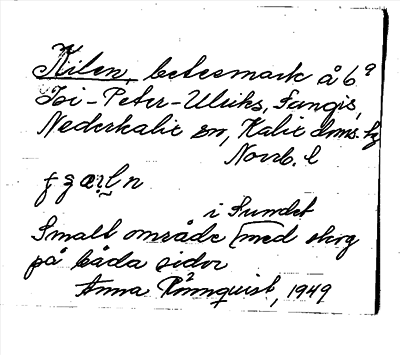 Kilen, betesmark å 6⁹
Isi-Peter-Ulriks, Fungis,
Nederkalix sn, Kalix dms. hg
Norrb. l
i Sundet
Smalt område [med skog
på båda sidor
Anna Rönnquist, 1949